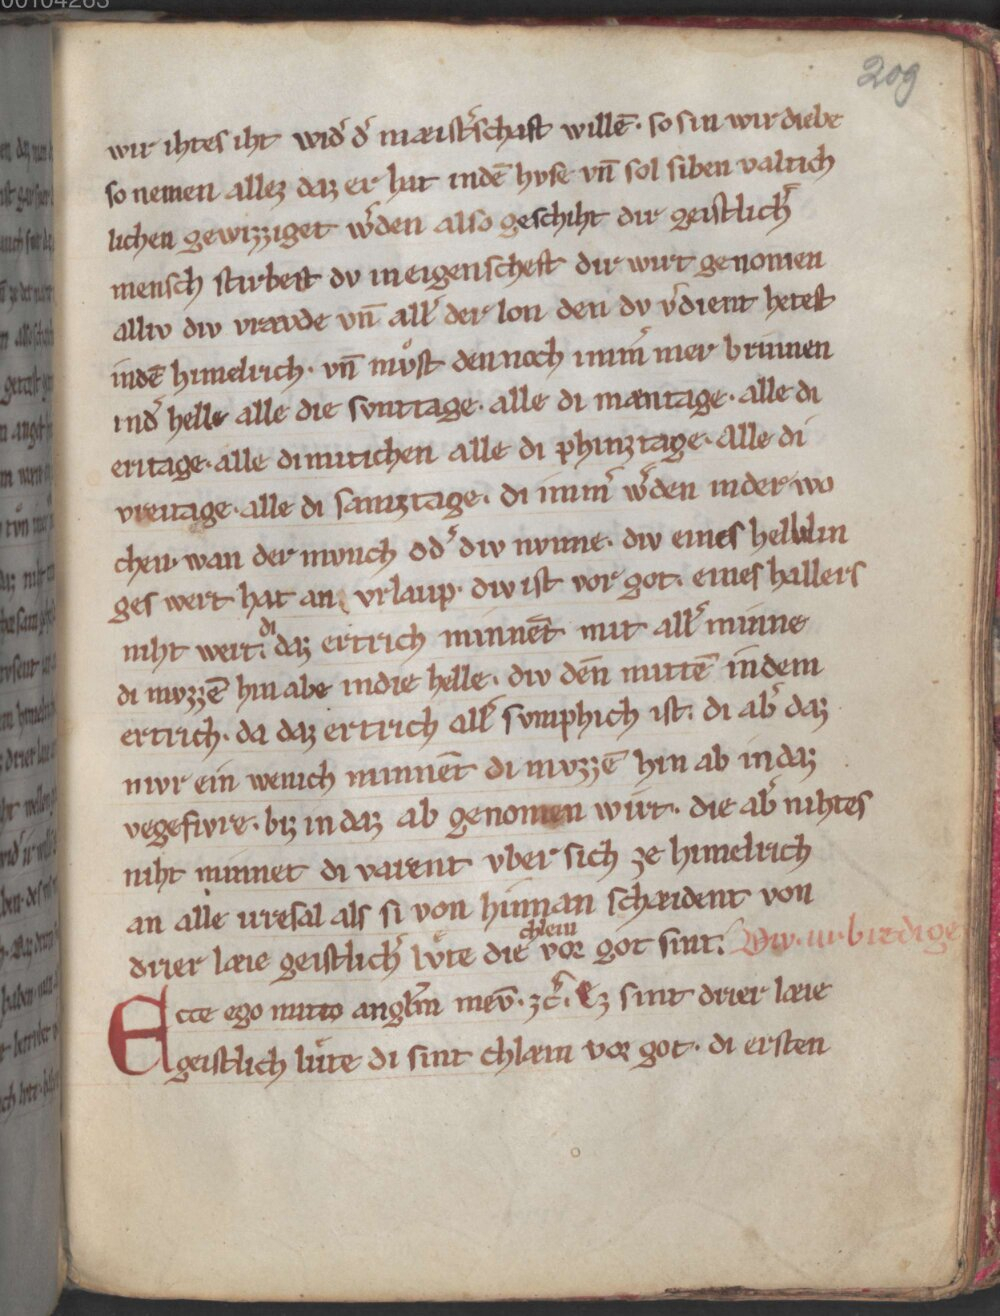 209
wir ihtes iht wid̄ d̄ mæist̄schaft willē· so sin wir diebe
so nemen allez daz er hat indē hvse vn̄ sol siben valtich
lichen gewizziget w̄den also geschiht dir geistlich̄
mensch stirbest dv in eigenscheft dir wirt genomen
alliv div vravde vn̄ all̄ der lon den dv v̄dient hetest
indē himelrich· vn̄ mv̊st dennoch imm̄ mer brinnen
ind̄ helle alle die svntage· alle di mæntage· alle di
eritage· alle di mitichen alle di phinztage· alle di
vreitage· alle di samztage· di imm̄ w̄den in der wo
chen· wan der mvnch od̄ div nvnne· div eines helblin
ges wert hat an vrlaup· div ist vor got· eines hallers
niht wert· di daz ertrich minnēt mit all̄ minne
di mvzzē hin abe in die helle· div dēn mittē in dem
ertrich· da daz ertrich all̄ svmphich ist· di ab̄ daz
nivr ein wenich minnēt di mvzzē hin ab in daz
vegefivre· biz in daz ab genomen wirt· die ab̄ nihtes
niht minnet di varent vber sich ze himelrich
an alle irresal als si von hinnan schæident von
drier læie geistlich̄ lv̊te die chlein vor got sint· Div· iii· bredige
Ecce ego mitto angl̄m mev̄· zc̄· Ez sint drier læie
geistlich lůte di sint chlæin vor got· di ersten